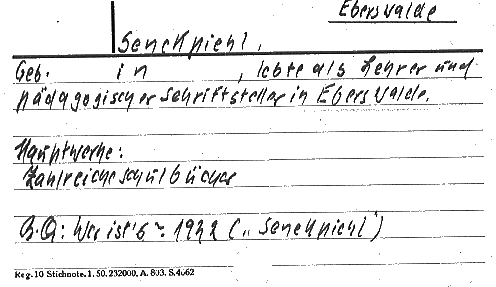 Eberswalde
Senckpiehl,
Geb. in , lebte als Lehrer und
pädagogischer Schriftsteller in Eberswalde.
Hauptwerke:
Zahlreiche Schulbücher
B.Q: Wer ist's - 1922 („Senckpiehl")
Reg. 10 Stichnote. 1. 50. 232000. A. 803. S. 4662